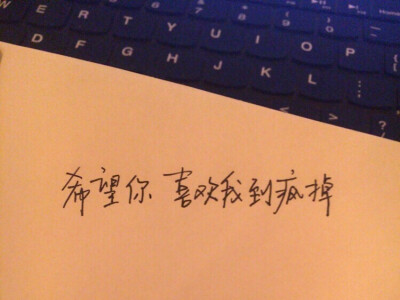 W E R T Y U I O P
D F G H J K L
希望你 喜欢我到疯掉